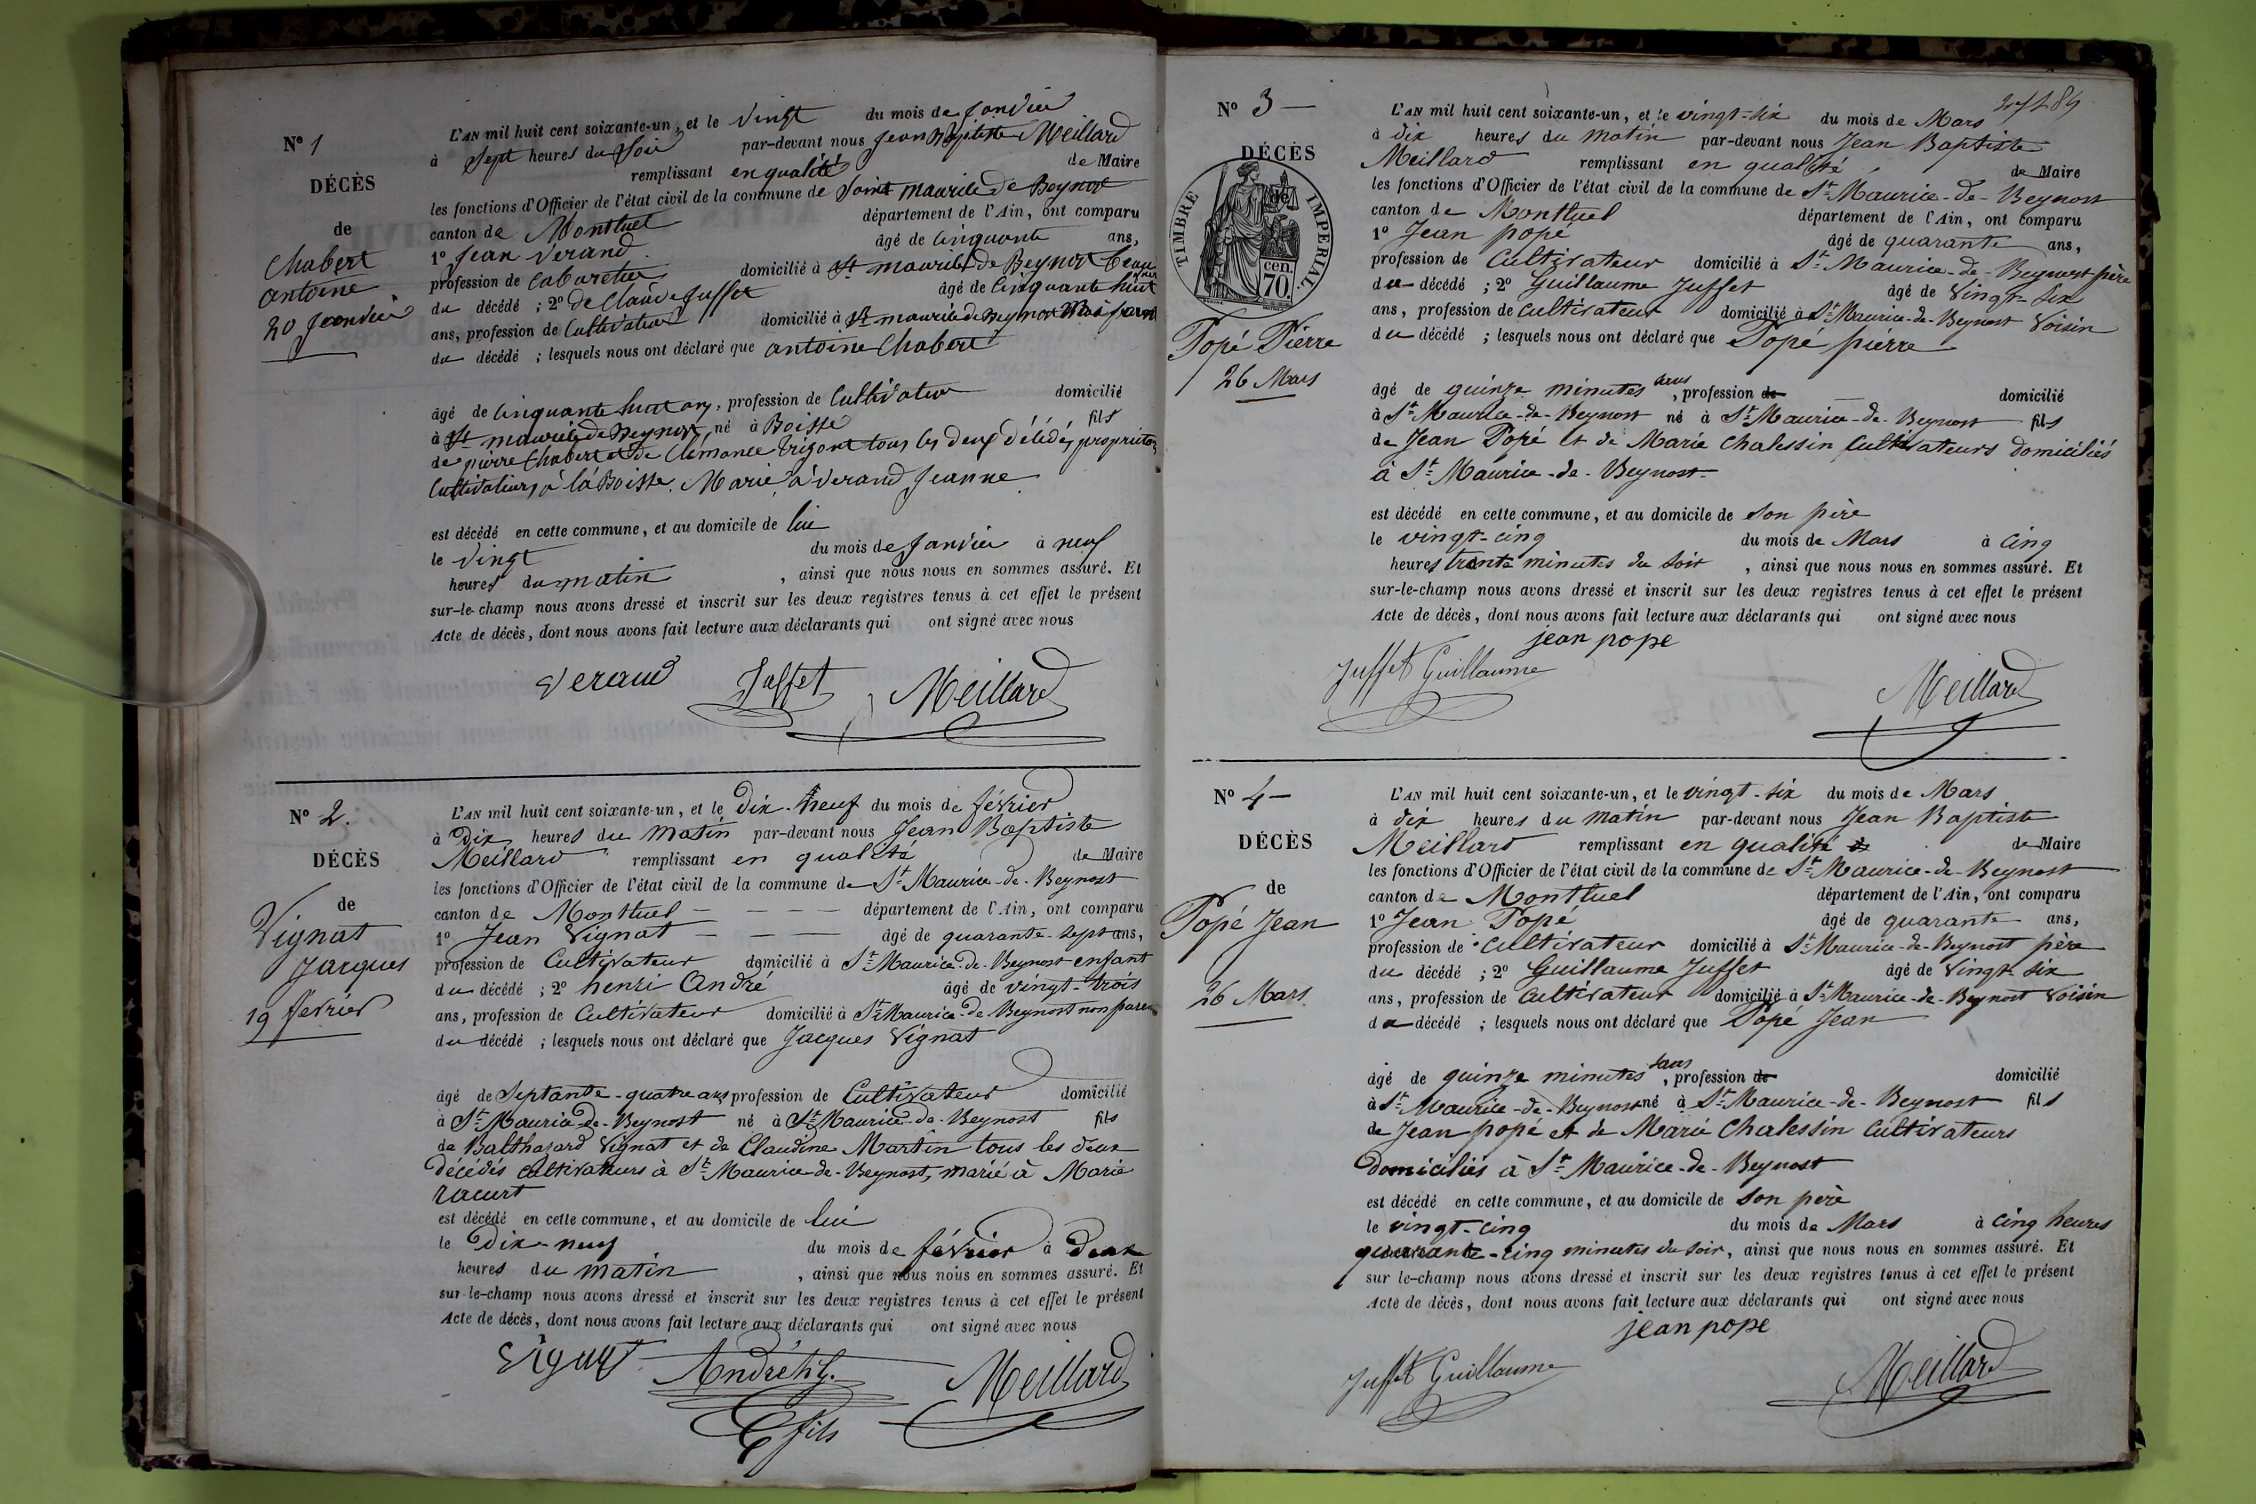 N° 1
DÉCÈS
de
Chabert
antoine
20 Janvier
L'AN mil huit cent soixante-un, et le vingt du mois de Janvier
à Sept heures du Soir par-devant nous Jean Baptiste Meillard
remplissant en qualité de Maire
les fonctions d'Officier de l'état civil de la commune de Saint maurice de Beynost
canton de Montluel département de l'Ain, ont comparu
1° Jean Verand âgé de Cinquante ans,
profession de Cabaretier domicilié à St maurice de Beynost beau frère
du décédé ; 2° de Claude Juffet âgé de Cinquante huit
ans, profession de Cultivateur domicilié à St maurice de Beynost non parent
du décédé ; lesquels nous ont déclaré que antoine Chabert
âgé de Cinquante huit ans, profession de Cultivateur domicilié
à St maurice de Beynost né à Boisse fils
de pierre Chabert et de Clémance trigont tous les deux décédés, propriétaires
Cultivateurs, à la Boisse. Marié à Verand Jeanne
est décédé en cette commune, et au domicile de lui
le vingt du mois de Janvier à neuf
heures du matin , ainsi que nous nous en sommes assuré. Et
sur-le-champ nous avons dressé et inscrit sur les deux registres tenus à cet effet le présent
Acte de décès, dont nous avons fait lecture aux déclarants qui ont signé avec nous
Veraud Juffet Meillard
N° 2.
DÉCÈS
de
Vignat
Jacques
19 février
L'AN mil huit cent soixante-un, et le Dix-neuf du mois de février
à Dix heures du Matin par-devant nous Jean Baptiste
Meillard remplissant en qualité de Maire
les fonctions d'Officier de l'état civil de la commune de St Maurice-de-Beynost
canton de Montluel département de l'Ain, ont comparu
1° Jean Vignat âgé de quarante-sept ans,
profession de Cultivateur domicilié à St Maurice-de-Beynost enfant
du décédé ; 2° henri André âgé de vingt-trois
ans, profession de Cultivateur domicilié à St Maurice-de Beynost non parent
du décédé ; lesquels nous ont déclaré que Jacques Vignat
âgé de Septante-quatre ans profession de Cultivateur domicilié
à St Maurice-de-Beynost né à St Maurice-de-Beynost fils
de Balthazard Vignat et de Claudine Martin tous les deux
décédés Cultivateurs à St Maurice-de-Beynost, marié à Marie
racurt
est décédé en cette commune, et au domicile de lui
le Dix-neuf du mois de février à Deux
heures du matin , ainsi que nous nous en sommes assuré. Et
sur-le-champ nous avons dressé et inscrit sur les deux registres tenus à cet effet le présent
Acte de décès, dont nous avons fait lecture aux déclarants qui ont signé avec nous
Vignat André hy. Meillard
fils
N° 3
DÉCÈS
de
TIMBRE IMPERIAL.
cen.
70.
Popé Pierre
26 Mars
L'AN mil huit cent soixante-un, et le vingt-six du mois de Mars
à dix heures du matin par-devant nous Jean Baptiste
Meillard remplissant en qualité de Maire
les fonctions d'Officier de l'état civil de la commune de St Maurice-de-Beynost
canton de Montluel département de l'Ain, ont comparu
1° Jean popé âgé de quarante ans,
profession de Cultivateur domicilié à St Maurice-de-Beynost père
du décédé ; 2° Guillaume Juffet âgé de Vingt-Six
ans, profession de Cultivateur domicilié à St Maurice-de-Beynost Voisin
du décédé ; lesquels nous ont déclaré que Popé pierre
âgé de quinze minutes sans , profession de domicilié
à St Maurice-de-Beynost né à St Maurice-de-Beynost fils
de Jean Popé et de Marie Chalessin Cultivateurs domiciliés
à St Maurice-de-Beynost
est décédé en cette commune, et au domicile de son père
le vingt-cinq du mois de Mars à cinq
heures trente minutes du soir , ainsi que nous nous en sommes assuré. Et
sur-le-champ nous avons dressé et inscrit sur les deux registres tenus à cet effet le présent
Acte de décès, dont nous avons fait lecture aux déclarants qui ont signé avec nous
jean pope
Juffet Guillaume Meillard
N° 4
DÉCÈS
de
Popé Jean
26 Mars
L'AN mil huit cent soixante-un, et le vingt-six du mois de Mars
à dix heures du matin par-devant nous Jean Baptiste
Meillard remplissant en qualité de de Maire
les fonctions d'Officier de l'état civil de la commune de St Maurice-de-Beynost
canton de Montluel département de l'Ain, ont comparu
1° Jean Popé âgé de quarante ans,
profession de Cultivateur domicilié à St Maurice-de-Beynost père
du décédé ; 2° Guillaume Juffet âgé de Vingt-six
ans, profession de Cultivateur domicilié à St Maurice-de-Beynost Voisin
du décédé ; lesquels nous ont déclaré que Popé Jean
âgé de quinze minutes sans , profession de domicilié
à St Maurice-de-Beynost né à St Maurice-de-Beynost fils
de Jean popé et de Marie Chalessin Cultivateurs
domiciliés à St Maurice-de-Beynost
est décédé en cette commune, et au domicile de son père
le vingt-cinq du mois de Mars à cinq heures
quarante-cinq minutes du soir, ainsi que nous nous en sommes assuré. Et
sur le-champ nous avons dressé et inscrit sur les deux registres tenus à cet effet le présent
Acte de décès, dont nous avons fait lecture aux déclarants qui ont signé avec nous
jean pope
Juffet Guillaume Meillard